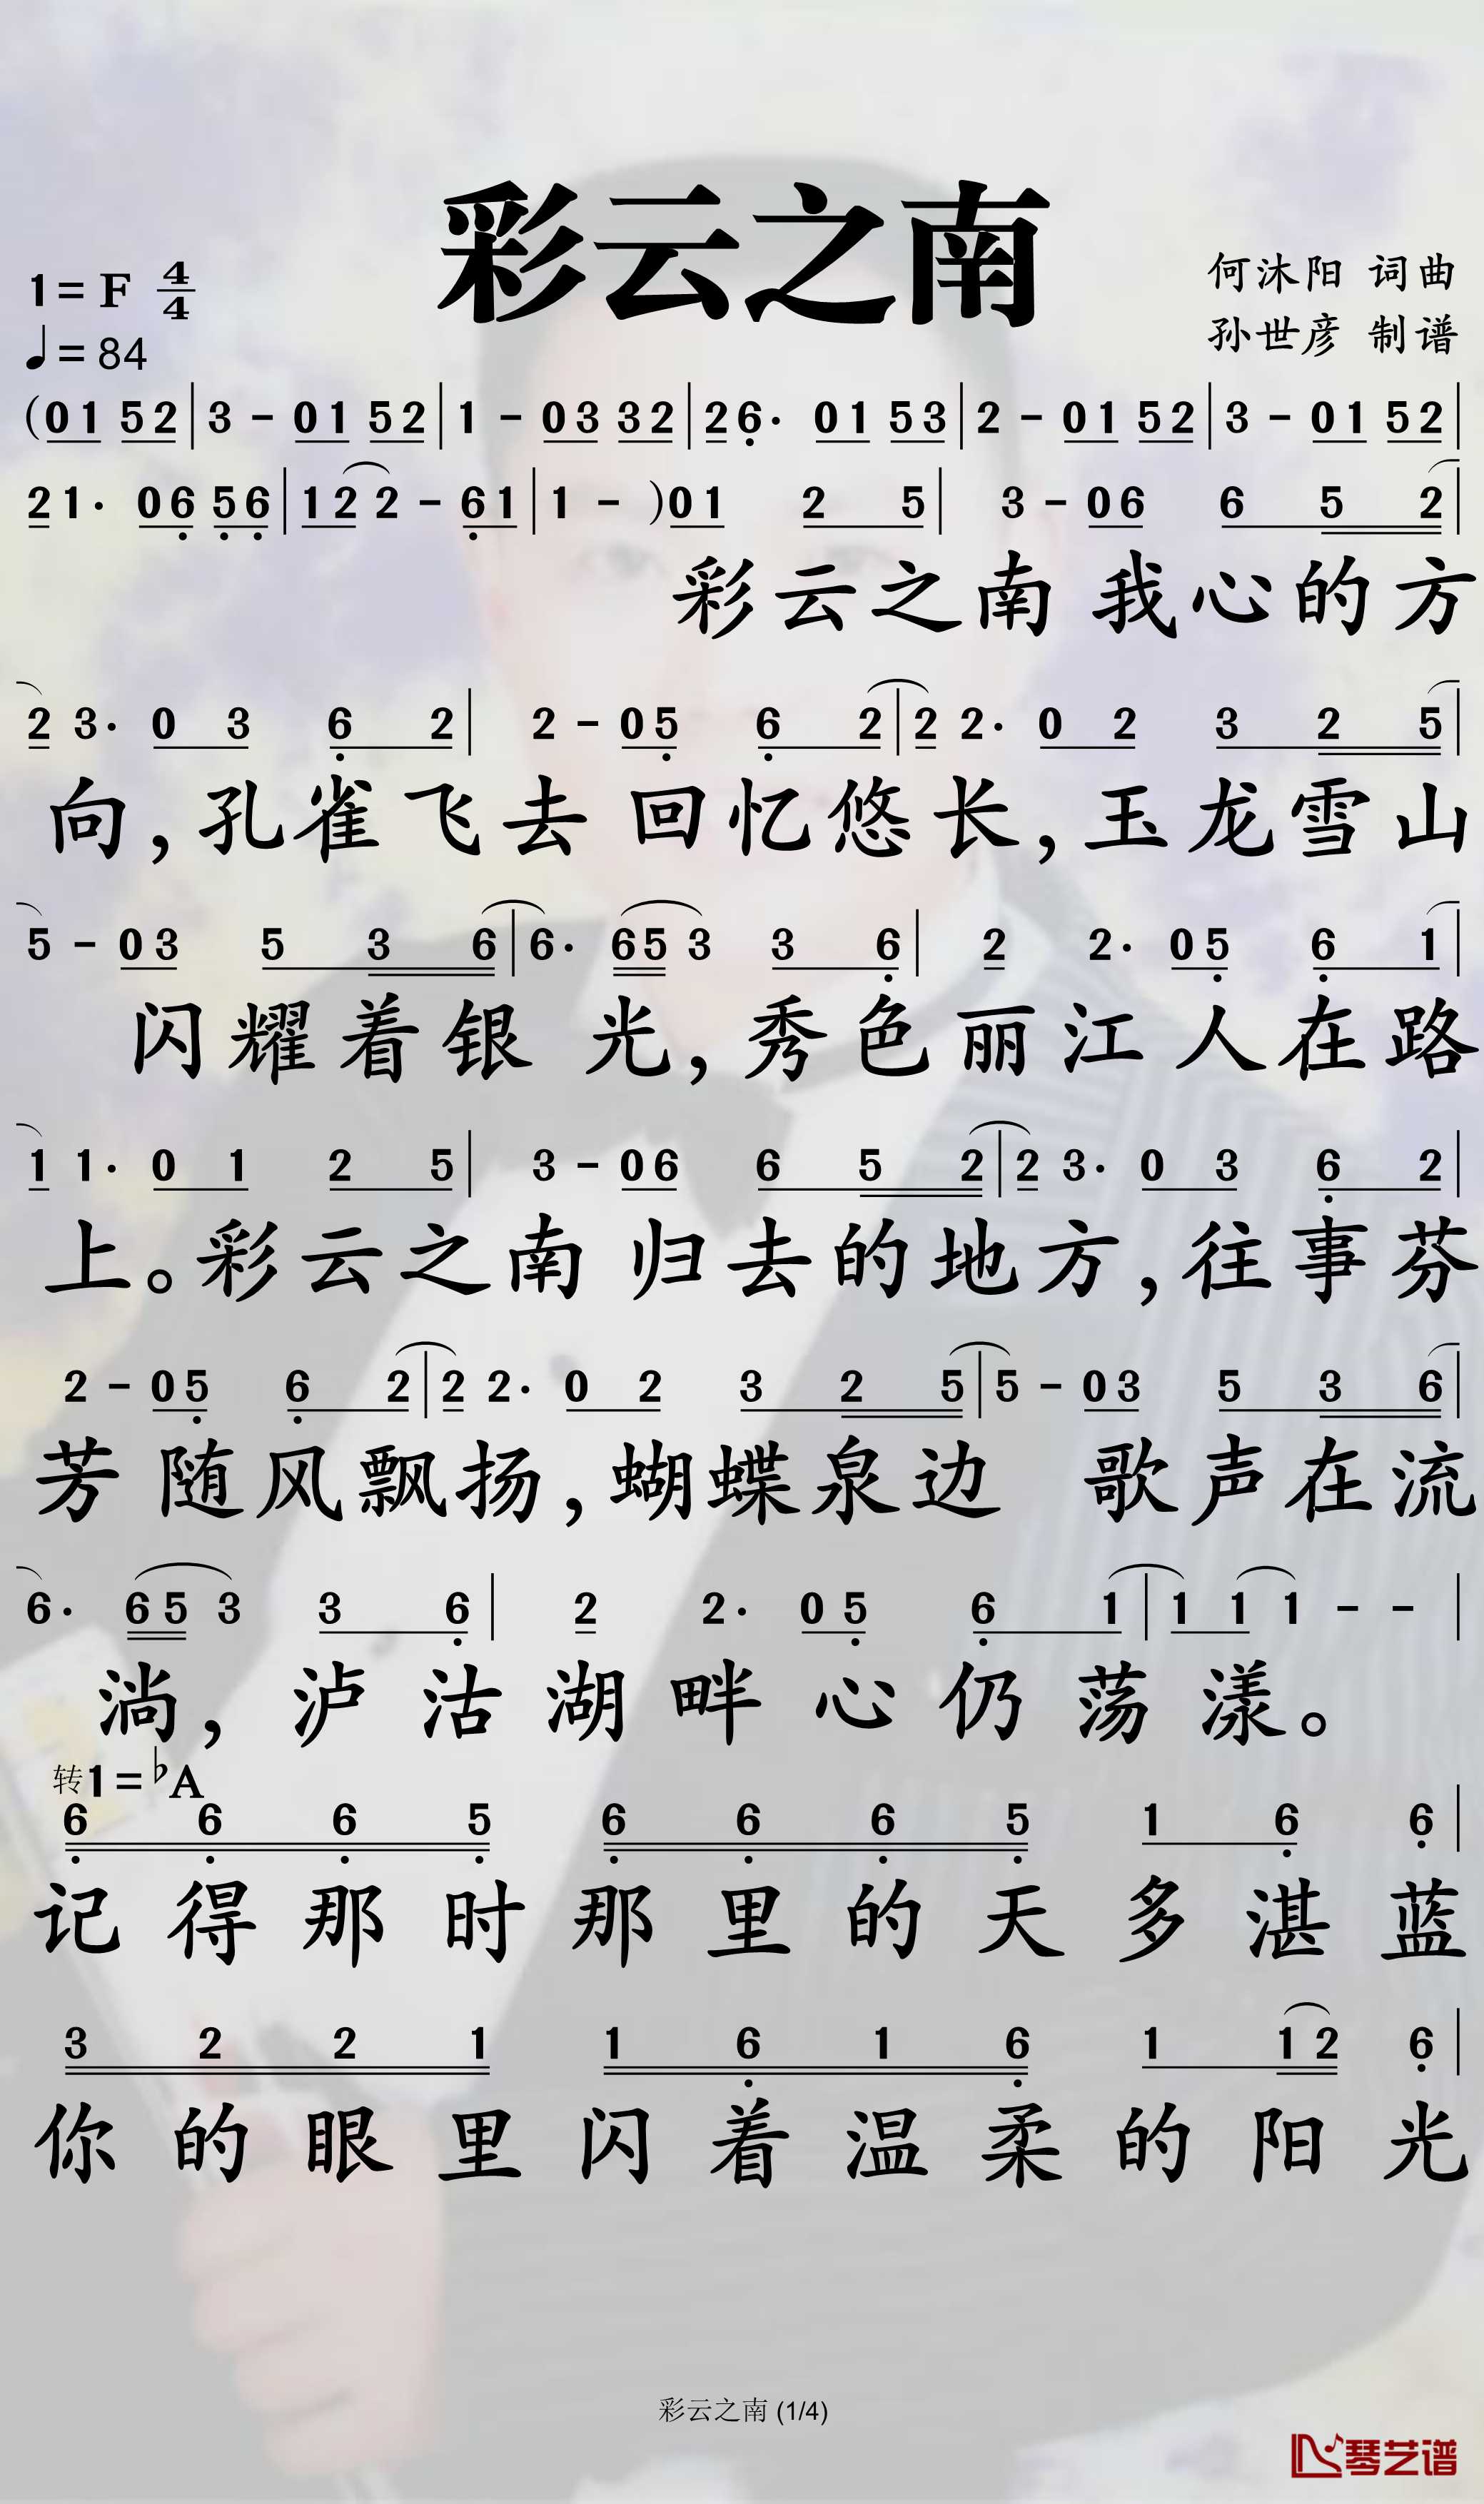 彩云之南
1=F 4/4
何沐阳 词曲
♩=84
孙世彦 制谱
(01 52|3 - 01 52|1 - 03 32|26· 01 53|2 - 01 52|3 - 01 52|
21· 06 56|122 - 61|1 - )01 2 5|3 - 06 6 5 2|
彩云之南 我心的方
2 3· 0 3 6 2|2 - 05 6 2|2 2· 0 2 3 2 5|
向,孔雀飞去 回忆悠长,玉龙雪山
5 - 03 5 3 6|6· 65 3 3 6|2 2· 05 6 1|
闪耀着银 光,秀色丽江人在路
1 1· 0 1 2 5|3 - 06 6 5 2|2 3· 0 3 6 2|
上。彩云之南 归去的地方,往事芬
2 - 05 6 2|2 2· 0 2 3 2 5|5 - 03 5 3 6|
芳 随风飘扬,蝴蝶泉边 歌声在流
6· 65 3 3 6|2 2· 05 6 1|1 1 1 - - |
淌,泸沽湖畔心仍荡漾。
转1=♭A
6 6 6 5 6 6 6 5 1 6 6|
记得那时那里的天多湛蓝
3 2 2 1 1 6 1 6 1 12 6|
你的眼里闪着温柔的阳光
彩云之南 (1/4)
琴艺谱